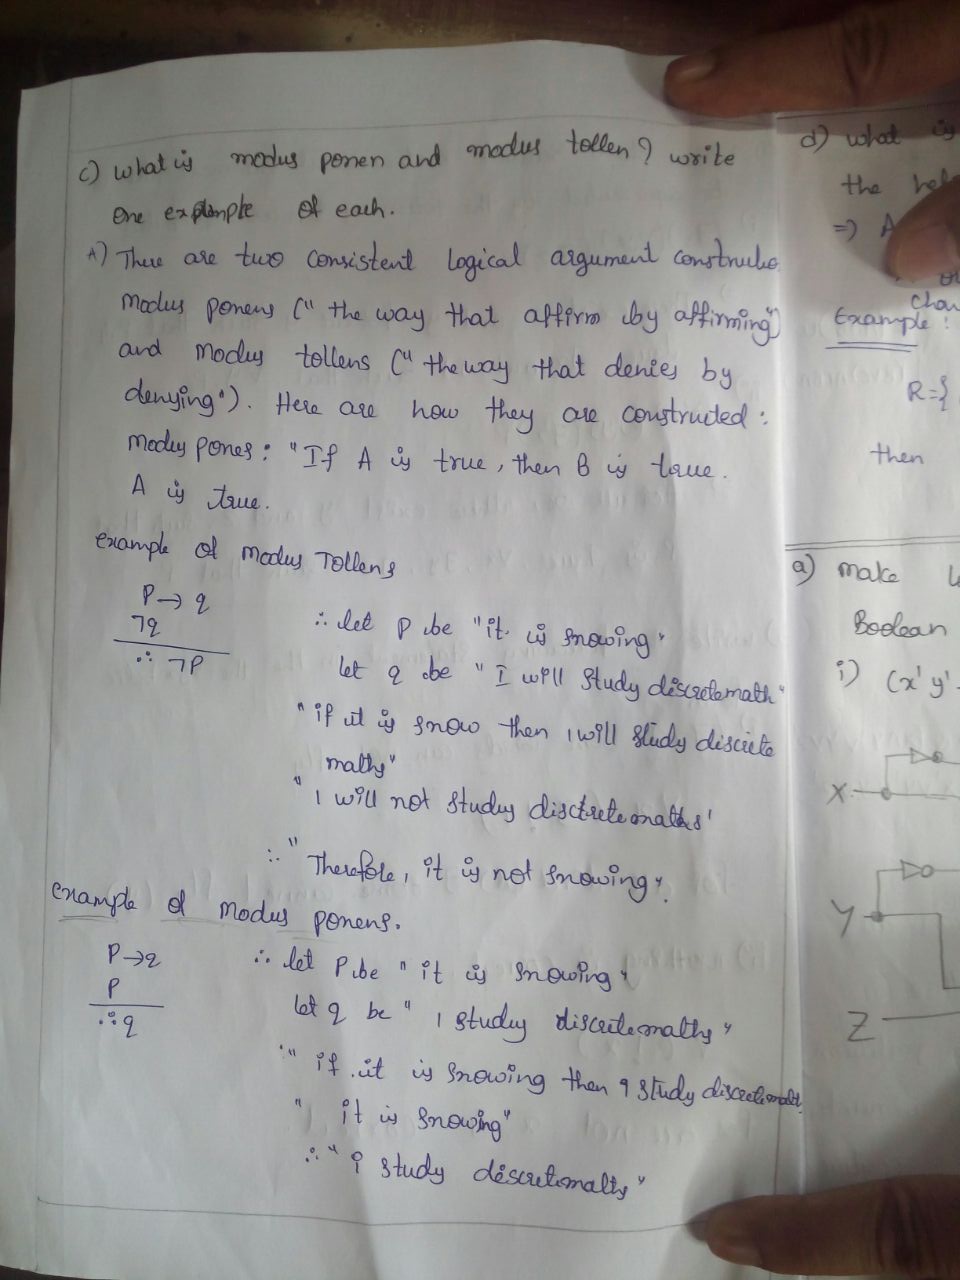 c) what is modus ponen and modus tollen? write
one example of each.
A) There are two consistent logical argument
modus ponens (" the way that affirm by affirming")
and modus tollens (" the way that denies by
denying"). Here are how they are constructed:
modus pones: "If A is true, then B is true.
A is true.
example of modus Tollens
P→q
¬q
∴ ¬P
∴ let p be "it is snowing"
let q be "I will study discretemath"
"if it is snow then i will study discrete
maths"
"i will not study disctrete maths'
∴ "Therefore, it is not snowing".
example of modus ponens.
P→q
P
∴ q
∴ let P be "it is snowing"
let q be "i study discretemaths"
"if it is snowing then i study
"it is snowing"
∴ "i study discretemaths"
d) what is
the
=> A
Example:
R={
then
a) make
Boolean
i) (x'y'
X
Y
Z